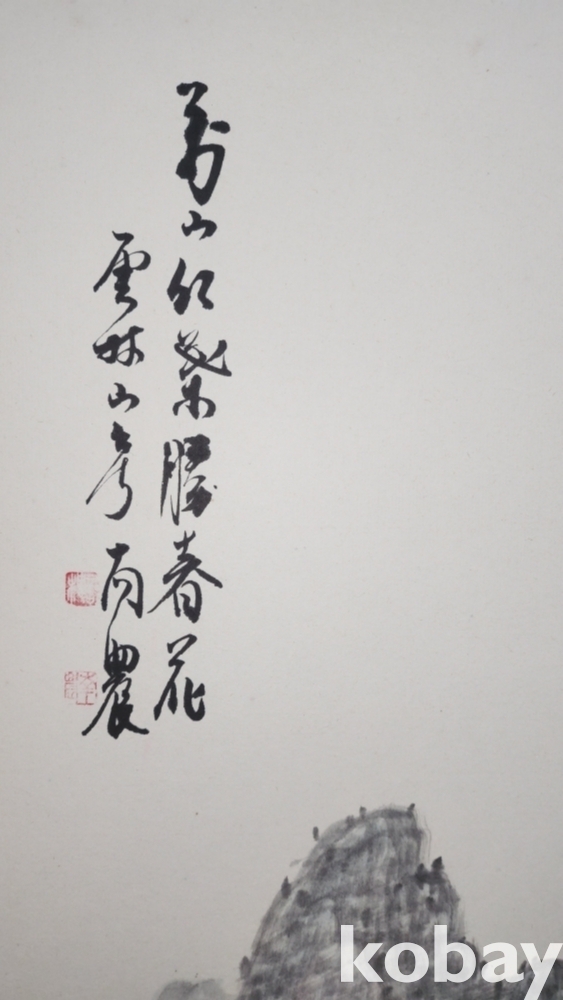 萬山紅葉勝春花
雲林山房 南農
kobay